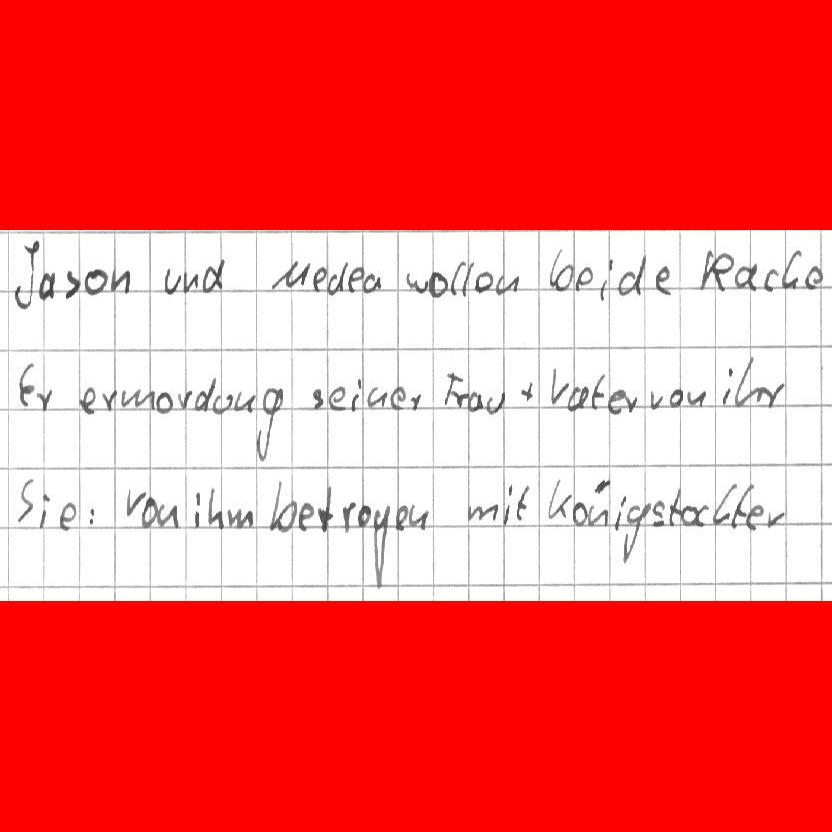 Jason und Medea wollen beide Rache
Er ermordung seiner Frau + Vater von ihr
Sie: von ihm betrogen mit Königstochter